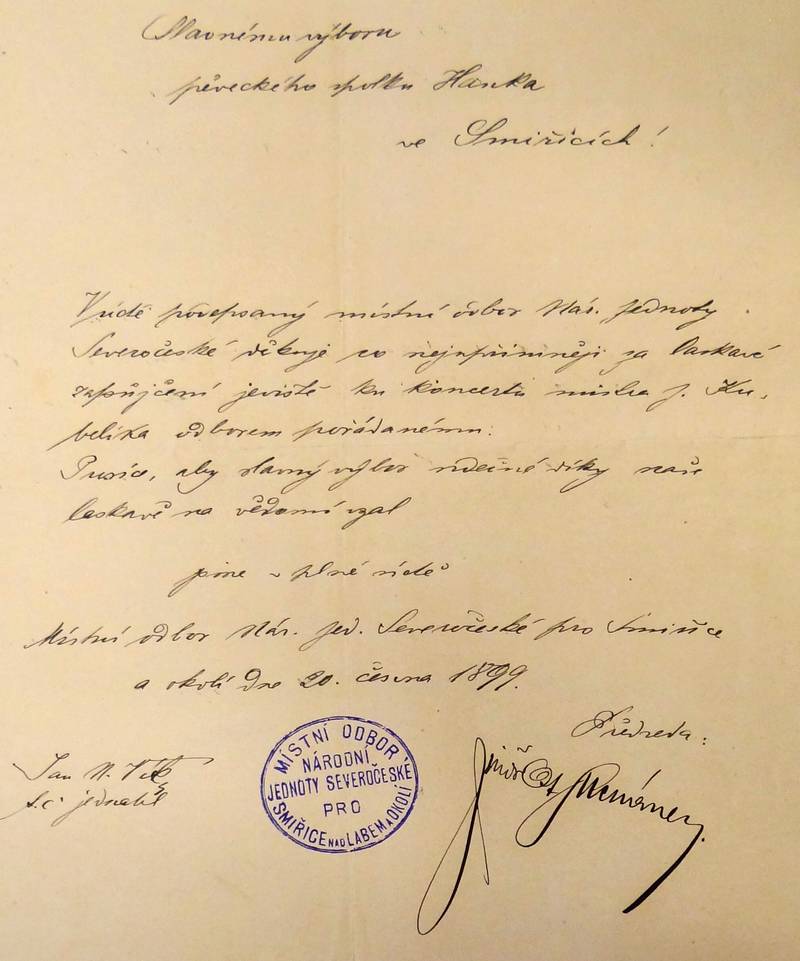 Slavnému výboru
pěveckého spolku Hanka
ve Smiřicích!
V úctě podepsaný místní odbor Nár. Jednoty
Severočeské děkuje co nejupřímněji za laskavé
zapůjčení jeviště ku koncertu mistra J. Ku-
belíka odborem pořádanému.
Prosíc, aby slavný výbor srdečné díky naše
laskavě na vědomí vzal
plné úctě
Místní odbor Nár. jed. Severočeské pro Smiřice
a okolí dne 20. června 1899.
Předseda:
Jan
jednatel
MÍSTNÍ ODBOR
NÁRODNÍ
JEDNOTY SEVEROČESKÉ
PRO
SMIŘICE NAD LABEM A OKOLÍ